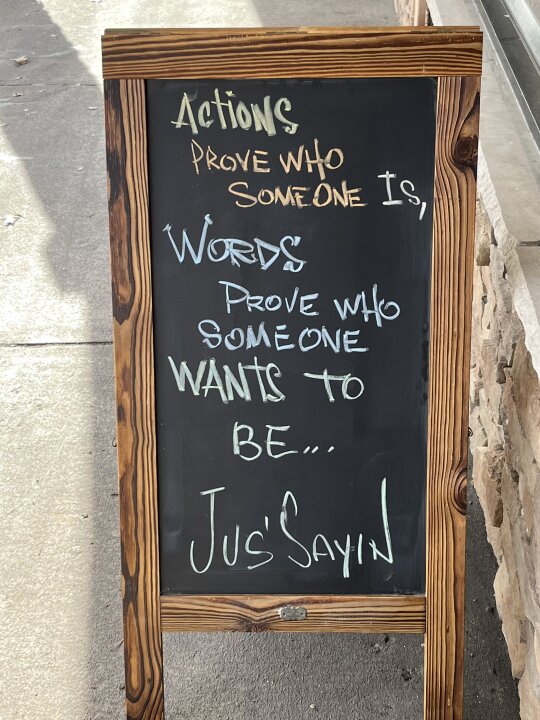 Actions
PROVE WHO
SOMEONE IS,
WORDS
PROVE WHO
SOMEONE
WANTS TO
BE...
JUS' SAYIN